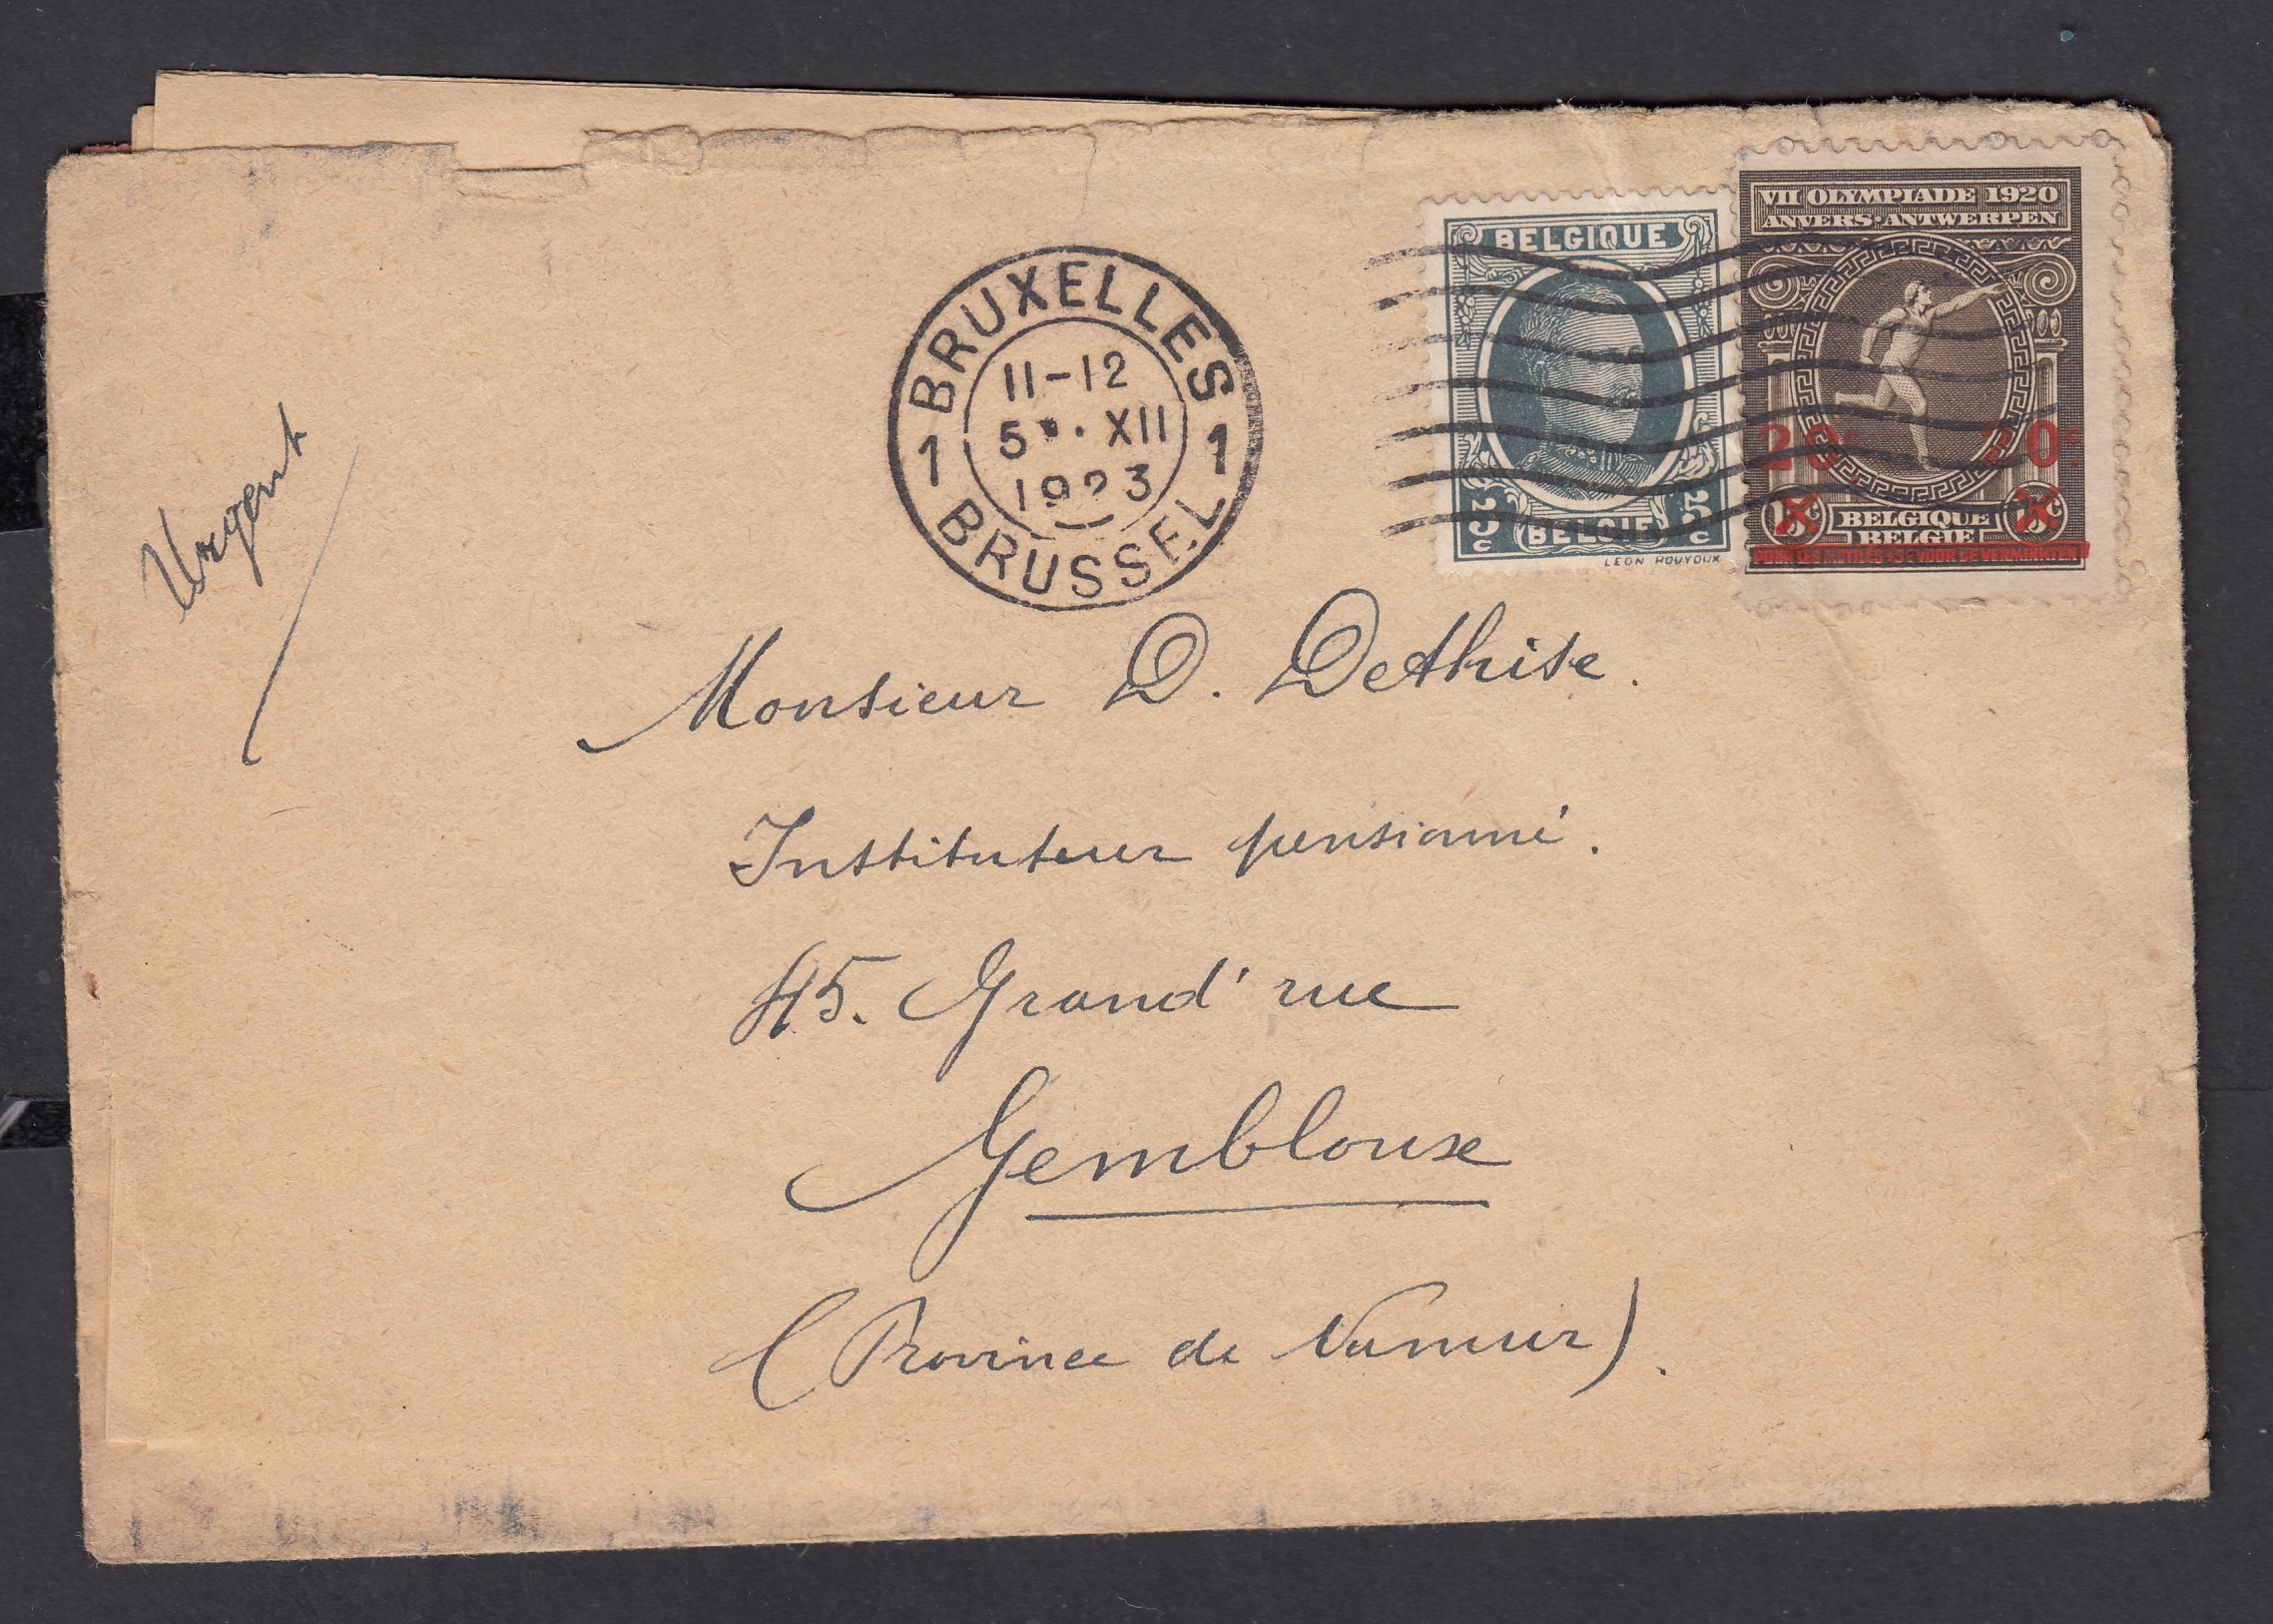 BRUXELLES
11-12
5 · XII
1923
1 1
BRUSSEL
BELGIQUE
5c 5c
BELGIË
LEON HOUYOUX
VII OLYMPIADE 1920
ANVERS·ANTWERPEN
20c 20c.
15c 15c
BELGIQUE
BELGIE
Urgent
Monsieur D. Dethise.
Instituteur pensionné.
45. Grand' rue
Gembloux
(Province de Namur).